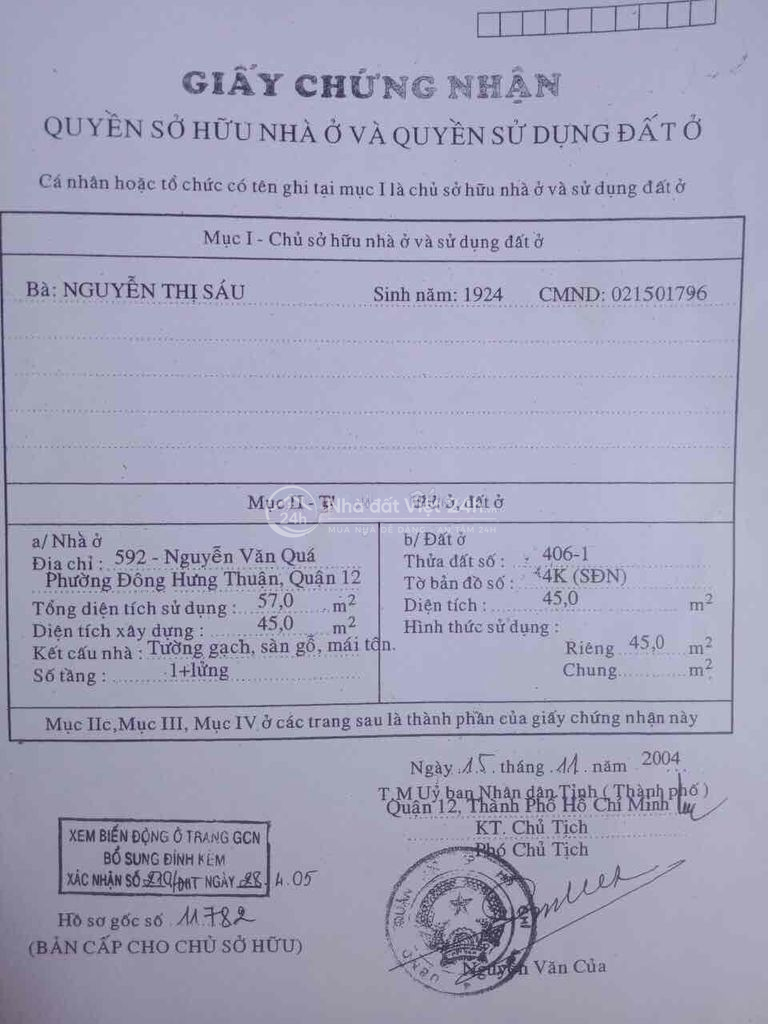 GIẤY CHỨNG NHẬN
QUYỀN SỞ HỮU NHÀ Ở VÀ QUYỀN SỬ DỤNG ĐẤT Ở
Cá nhân hoặc tổ chức có tên ghi tại mục I là chủ sở hữu nhà ở và sử dụng đất ở
Mục I - Chủ sở hữu nhà ở và sử dụng đất ở
Bà: NGUYỄN THỊ SÁU Sinh năm: 1924 CMND: 021501796
Mục II - ở, đất ở
Nhà đất Việt 24h
24h
MUA NỰA DỄ DÀNG - AN TÂM 24H
a/ Nhà ở
Địa chỉ : 592 - Nguyễn Văn Quá
Phường Đông Hưng Thuận, Quận 12
Tổng diện tích sử dụng : 57,0 m2
Diện tích xây dựng : 45,0 m2
Kết cấu nhà : Tường gạch, sàn gỗ, mái tôn.
Số tầng : 1+lửng
b/ Đất ở
Thửa đất số : 406-1
Tờ bản đồ số : 4K (SĐN)
Diện tích : 45,0 m2
Hình thức sử dụng :
Riêng 45,0 m2
Chung m2
Mục IIc,Mục III, Mục IV ở các trang sau là thành phần của giấy chứng nhận này
Ngày 15 tháng 11 năm 2004
T.M Uỷ ban Nhân dân Tỉnh ( Thành phố )
Quận 12, Thành Phố Hồ Chí Minh
KT. Chủ Tịch
Phó Chủ Tịch
XEM BIẾN ĐỘNG Ở TRANG GCN
BỔ SUNG ĐÍNH KÈM
XÁC NHẬN SỐ NGÀY 28.4.05
Hồ sơ gốc số 11782
(BẢN CẤP CHO CHỦ SỞ HỮU)
Nguyễn Văn Của